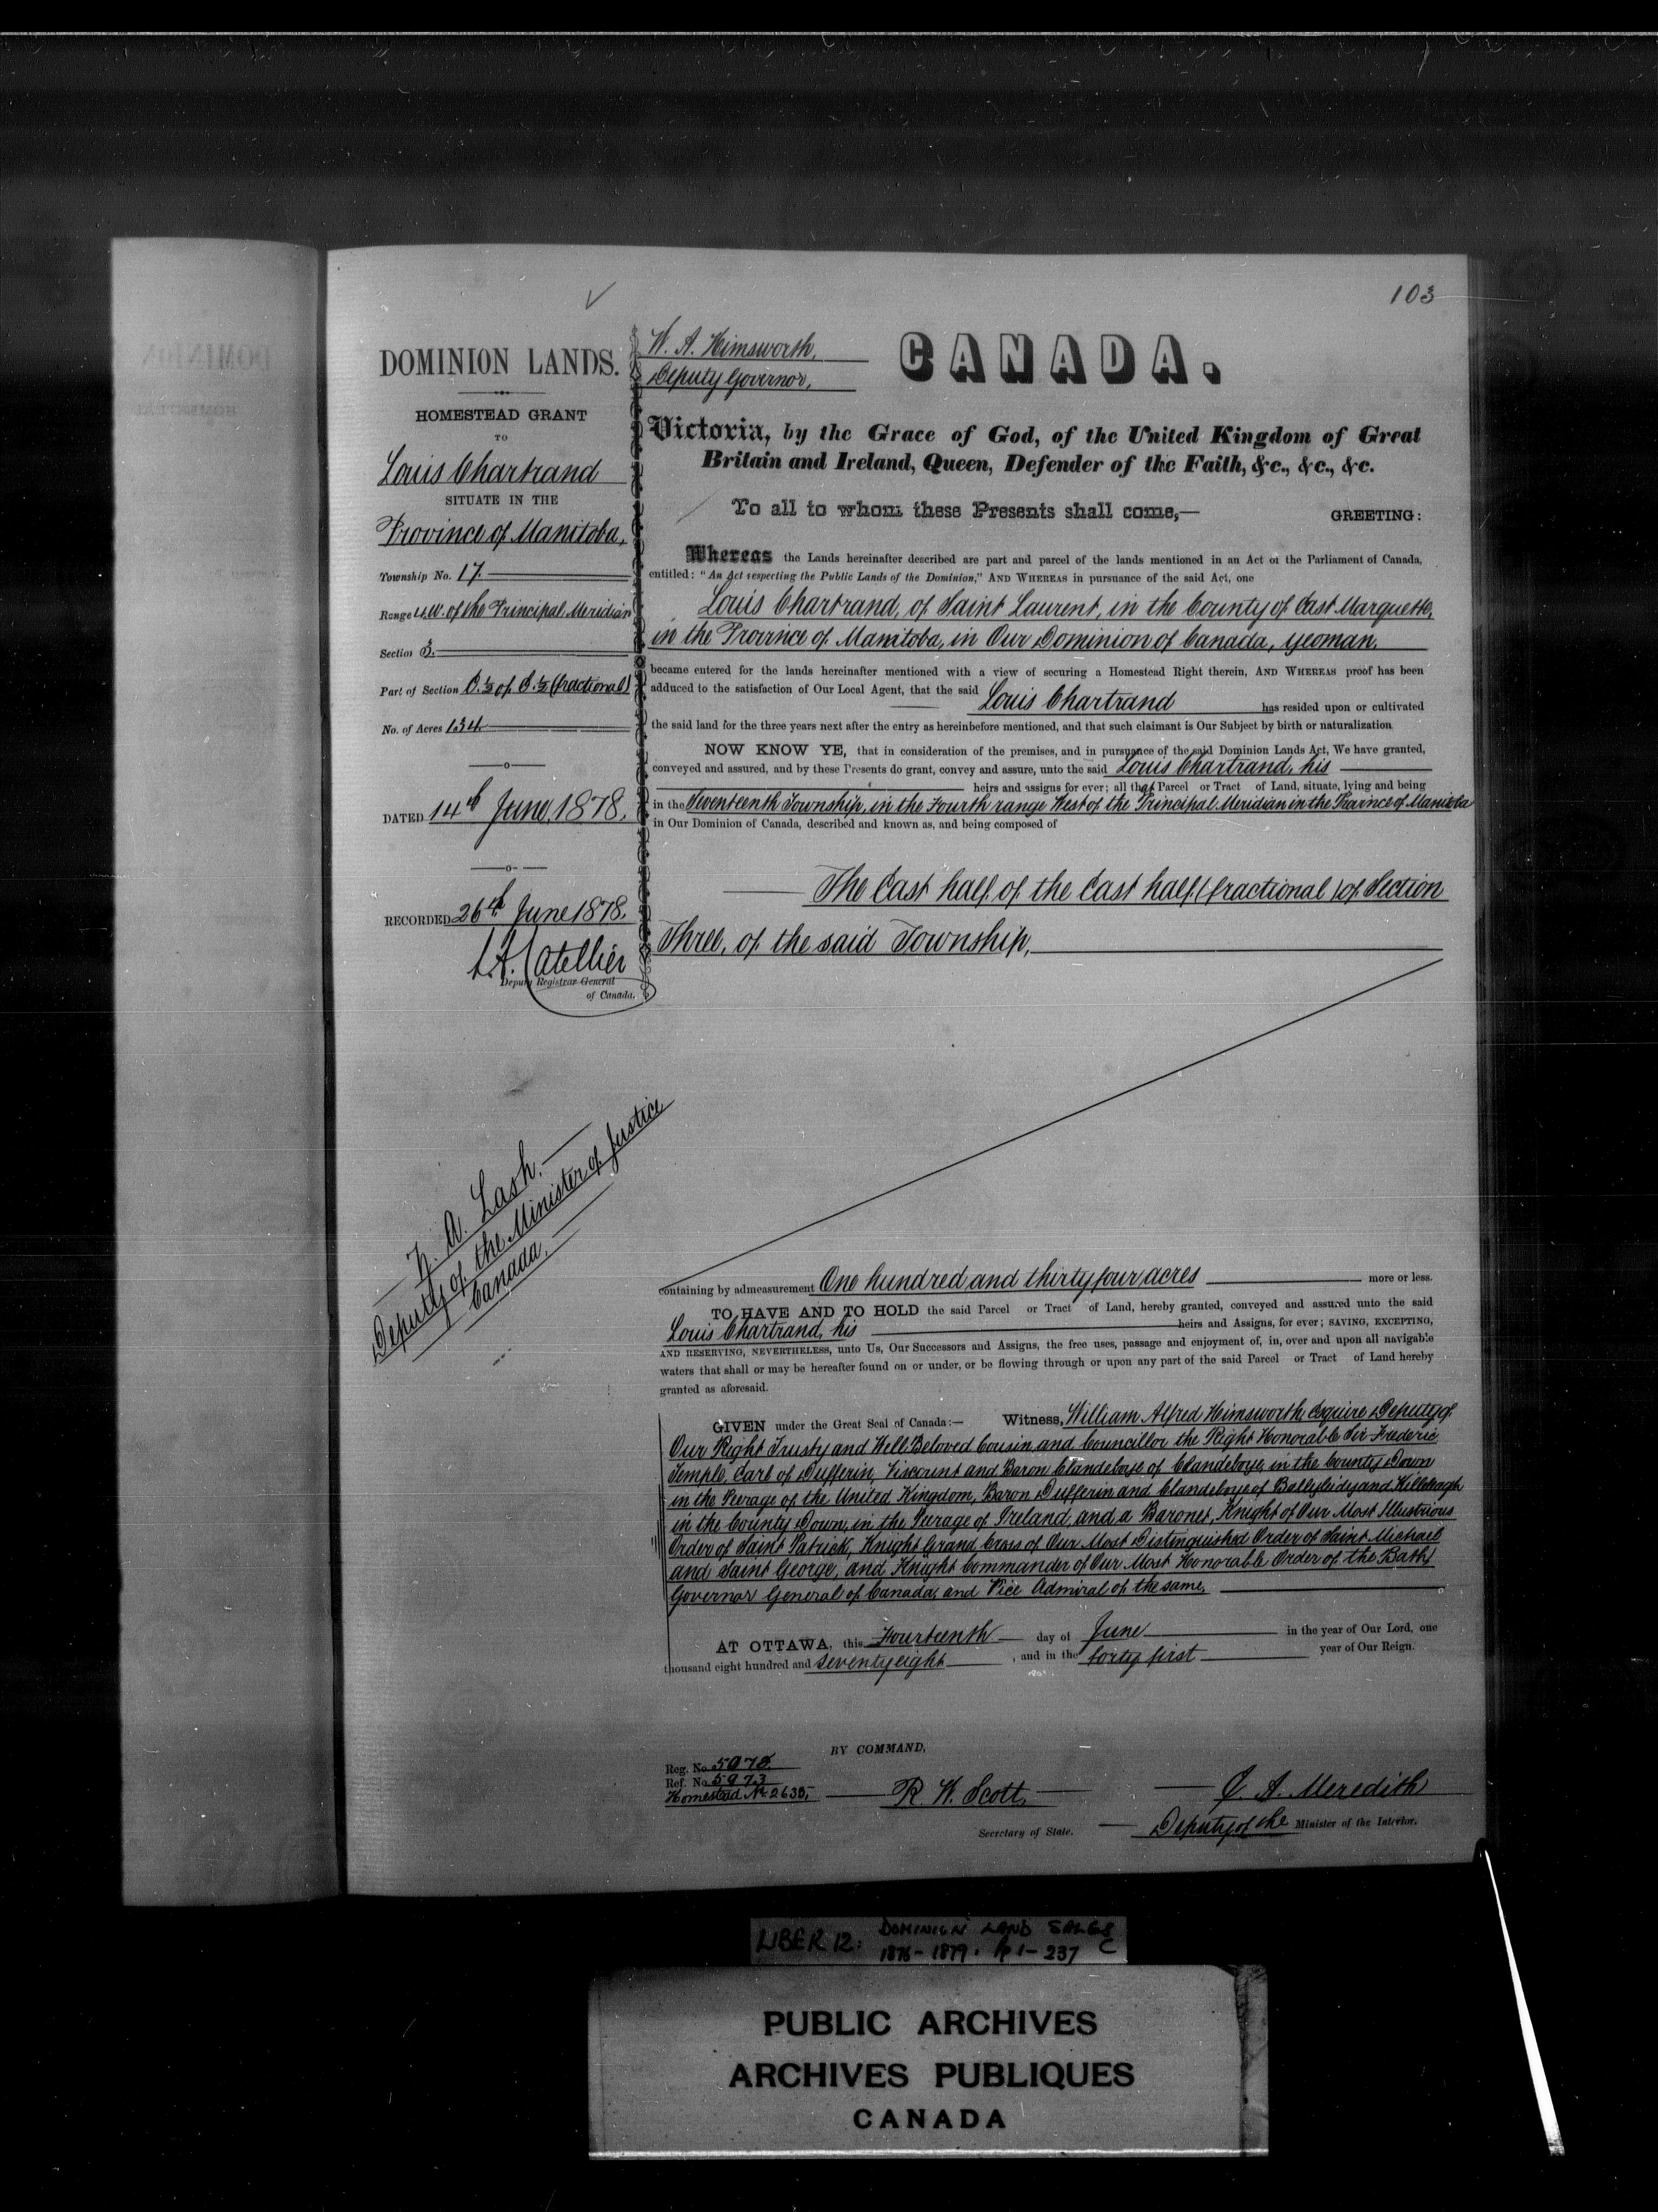 103
DOMINION LANDS.
HOMESTEAD GRANT
TO
Louis Chartrand
SITUATE IN THE
Province of Manitoba,
Township No. 17.
Range 4.W. of the Principal Meridian
Section 3.
Part of Section E.½ of E.½ (fractional)
No. of Acres 134.
DATED 14th June, 1878.
RECORDED 26th June 1878.
L.A. Catellier
Deputy Registrar General
of Canada.
Z. A. Lash.
Deputy of the Minister of Justice
Canada.
W. A. Himsworth,
Deputy Governor,
CANADA.
Victoria, by the Grace of God, of the United Kingdom of Great
Britain and Ireland, Queen, Defender of the Faith, &c., &c., &c.
To all to whom these Presents shall come,—
GREETING:
Whereas the Lands hereinafter described are part and parcel of the lands mentioned in an Act of the Parliament of Canada,
entitled: "An Act respecting the Public Lands of the Dominion," AND WHEREAS in pursuance of the said Act, one
Louis Chartrand, of Saint Laurent, in the County of East Marquette,
in the Province of Manitoba, in Our Dominion of Canada, yeoman,
became entered for the lands hereinafter mentioned with a view of securing a Homestead Right therein, AND WHEREAS proof has been
adduced to the satisfaction of Our Local Agent, that the said Louis Chartrand has resided upon or cultivated
the said land for the three years next after the entry as hereinbefore mentioned, and that such claimant is Our Subject by birth or naturalization
NOW KNOW YE, that in consideration of the premises, and in pursuance of the said Dominion Lands Act, We have granted,
conveyed and assured, and by these Presents do grant, convey and assure, unto the said Louis Chartrand, his
heirs and assigns for ever; all that Parcel or Tract of Land, situate, lying and being
in the Seventeenth Township, in the Fourth range West of the Principal Meridian in the Province of Manitoba
in Our Dominion of Canada, described and known as, and being composed of
The East half of the East half (fractional) of Section
Three, of the said Township,
containing by admeasurement One hundred and thirty four acres more or less.
TO HAVE AND TO HOLD the said Parcel or Tract of Land, hereby granted, conveyed and assured unto the said
Louis Chartrand, his heirs and Assigns, for ever; SAVING, EXCEPTING,
AND RESERVING, NEVERTHELESS, unto Us, Our Successors and Assigns, the free uses, passage and enjoyment of, in, over and upon all navigable
waters that shall or may be hereafter found on or under, or be flowing through or upon any part of the said Parcel or Tract of Land hereby
granted as aforesaid.
GIVEN under the Great Seal of Canada:— Witness, William Alfred Himsworth, Esquire Deputy of
Our Right Trusty and Well Beloved Cousin and Councillor the Right Honorable Sir Frederic
Temple, Earl of Dufferin, Viscount and Baron Clandeboye of Clandeboye, in the County Down
in the Peerage of the United Kingdom, Baron Dufferin and Clandeboye of Ballyleidy and Killeleagh
in the County Down, in the Peerage of Ireland, and a Baronet, Knight of Our Most Illustrious
Order of Saint Patrick, Knight Grand Cross of Our Most Distinguished Order of Saint Michael
and Saint George, and Knight Commander of Our Most Honorable Order of the Bath,
Governor General of Canada, and Vice Admiral of the same,
AT OTTAWA, this Fourteenth day of June in the year of Our Lord, one
thousand eight hundred and seventy eight, and in the forty first year of Our Reign.
BY COMMAND,
Reg. No. 5978
Ref. No. 5973
Homestead No. 2635,
R. W. Scott,
Secretary of State.
E. A. Meredith
Deputy of the Minister of the Interior.
LIBER 12: DOMINION LAND SALES
1876-1879. Pp 1-237 C
PUBLIC ARCHIVES
ARCHIVES PUBLIQUES
CANADA